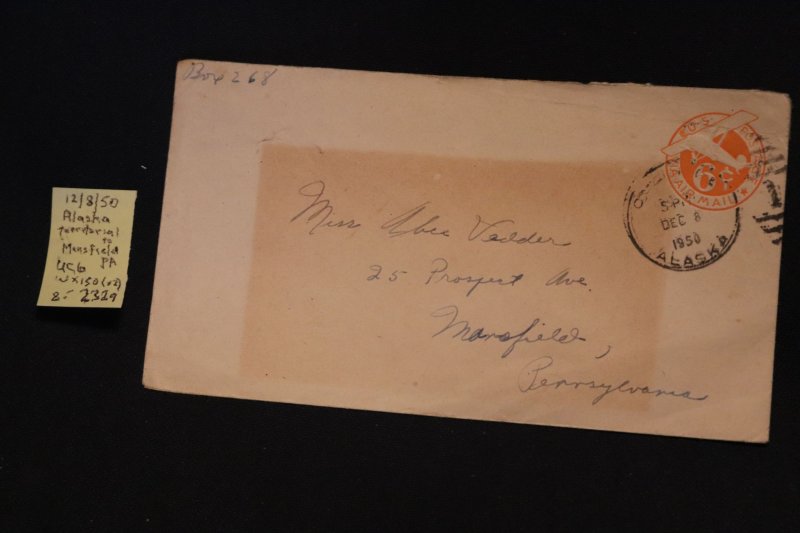 Box 268
Miss Abea Vedder
25 Prospect Ave.
Mansfield,
Pennsylvania
U.S. POSTAGE
6¢
VIA AIR MAIL
DEC 8
1950
ALASKA
12/8/50
Alaska
territorial
to
Mansfield
PA
UC6
W X150 (x2)
8.- 2329